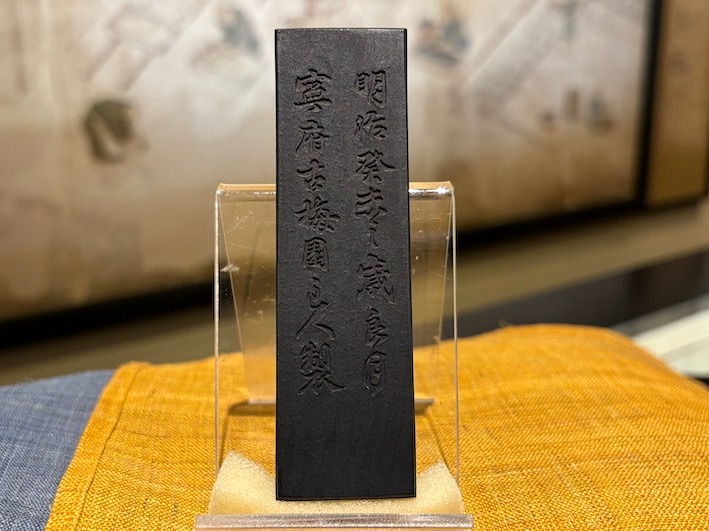 明治癸未之歳良月
寧府古梅園主人製